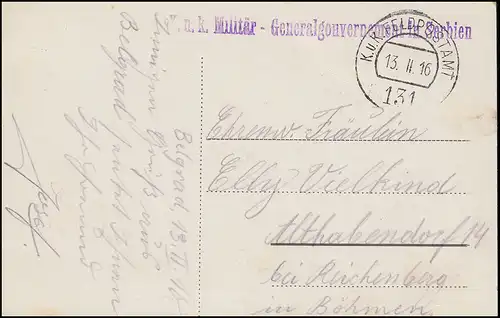 u. k. Militär - Generalgouvernement in Serbien
K.u.K. FELDPOSTAMT
13. II. 16
131
Belgrad, 13. II. 16
Grüße aus
Belgrad sendet Ihnen
Josef.
Ehrenw Fräulein
Elly Vielkind
Althabendorf 14
bei Reichenberg
in Böhmen